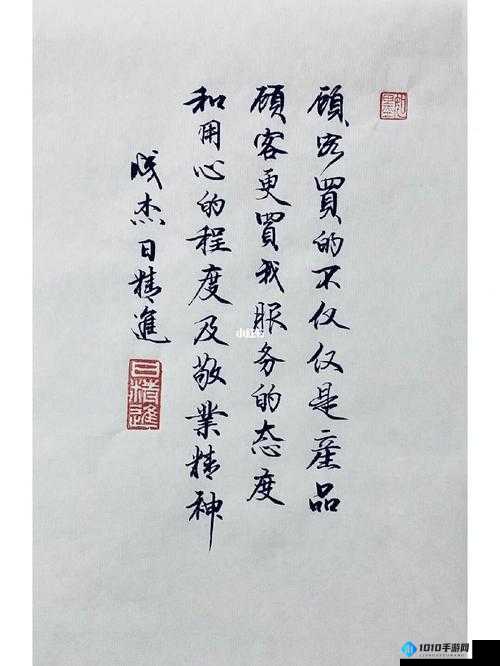 顾客買的不仅仅是産品
顾客更買我服务的态度
和用心的程度及敬業精神
成杰日精進
日精進
小红书
1010手游网